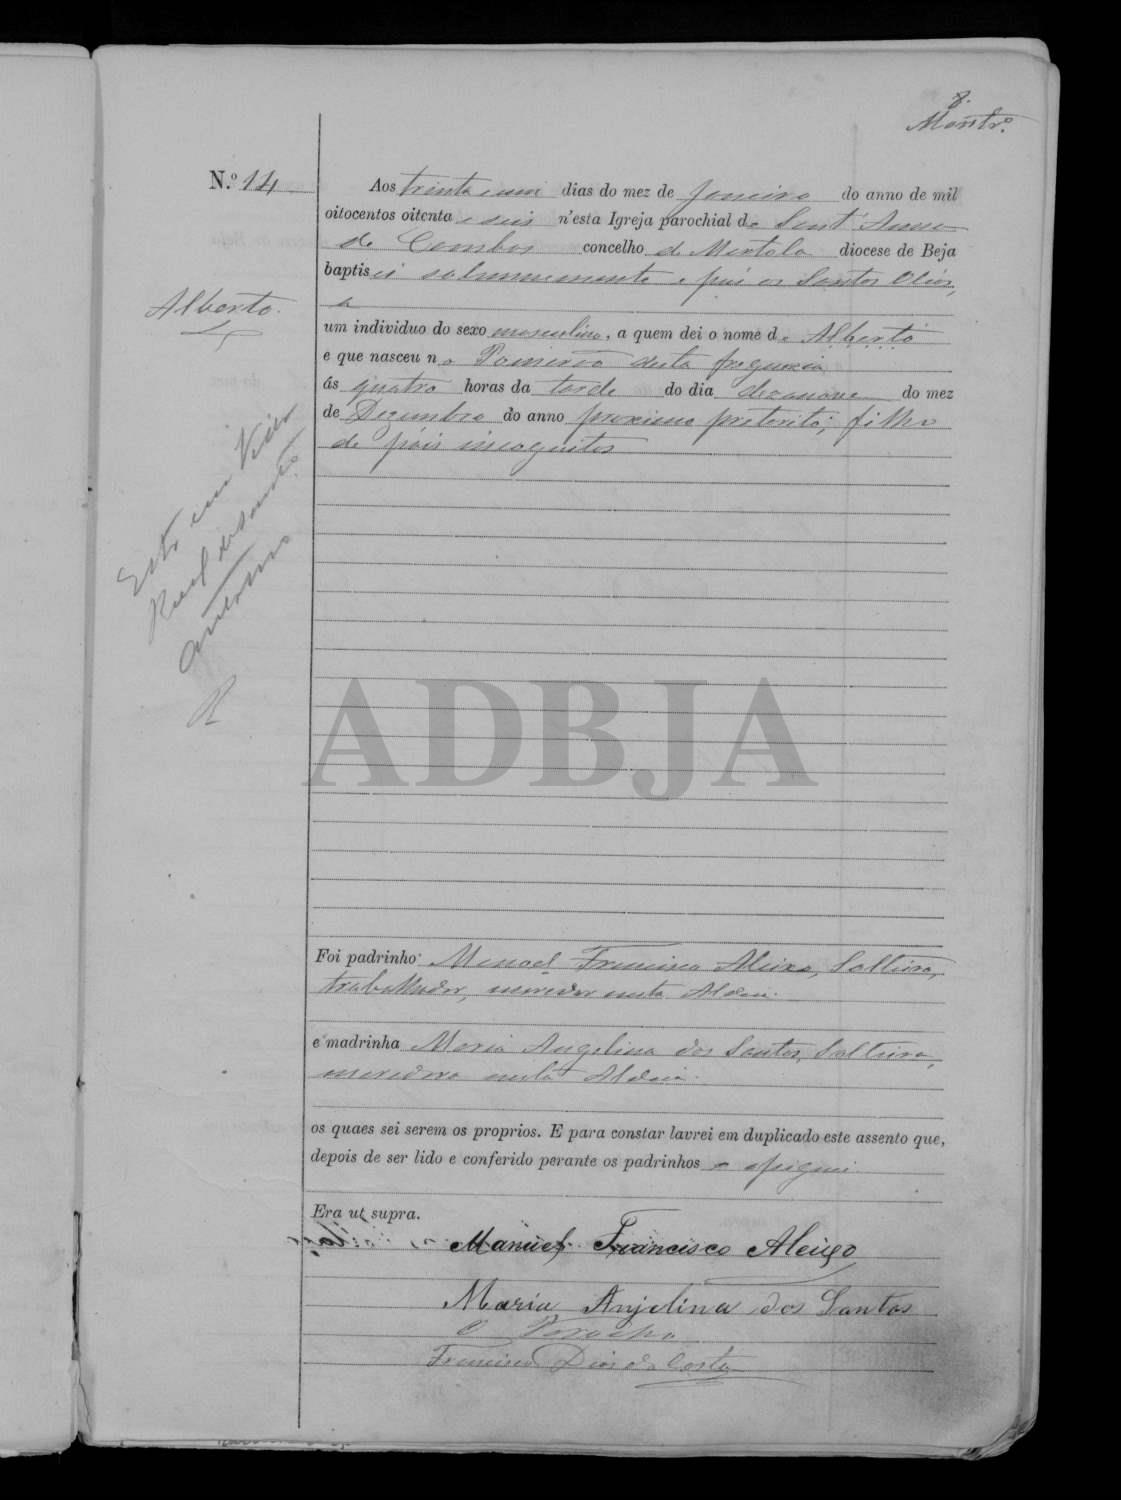 8.
N.º 14
Aos trinta e um dias do mez de Janeiro do anno de mil
oitocentos oitenta e seis n'esta Igreja parochial de Sant'Anna
de Cambas concelho de Mertola diocese de Beja
baptisei solemnemente e puz os Santos Oleos,
a
Alberto.
um individuo do sexo masculino, a quem dei o nome de Alberto
e que nasceu no Pomarão desta freguezia
ás quatro horas da tarde do dia dezanove do mez
de Dezembro do anno proximo preterito; filho
de páis incognitos
Está em Villa
Real de Santo
Antonio
R
ADBJA
Foi padrinho Manoel Francisco Aleixo, Solteiro,
trabalhador, morador nesta Aldeia.
e madrinha Maria Angelina dos Santos, Solteira,
moradora nesta Aldeia.
os quaes sei serem os proprios. E para constar lavrei em duplicado este assento que,
depois de ser lido e conferido perante os padrinhos o assignei.
Era ut supra.
Manuel Francisco Aleixo
Maria Anjelina dos Santos
O Parocho
Francisco Dias da Costa